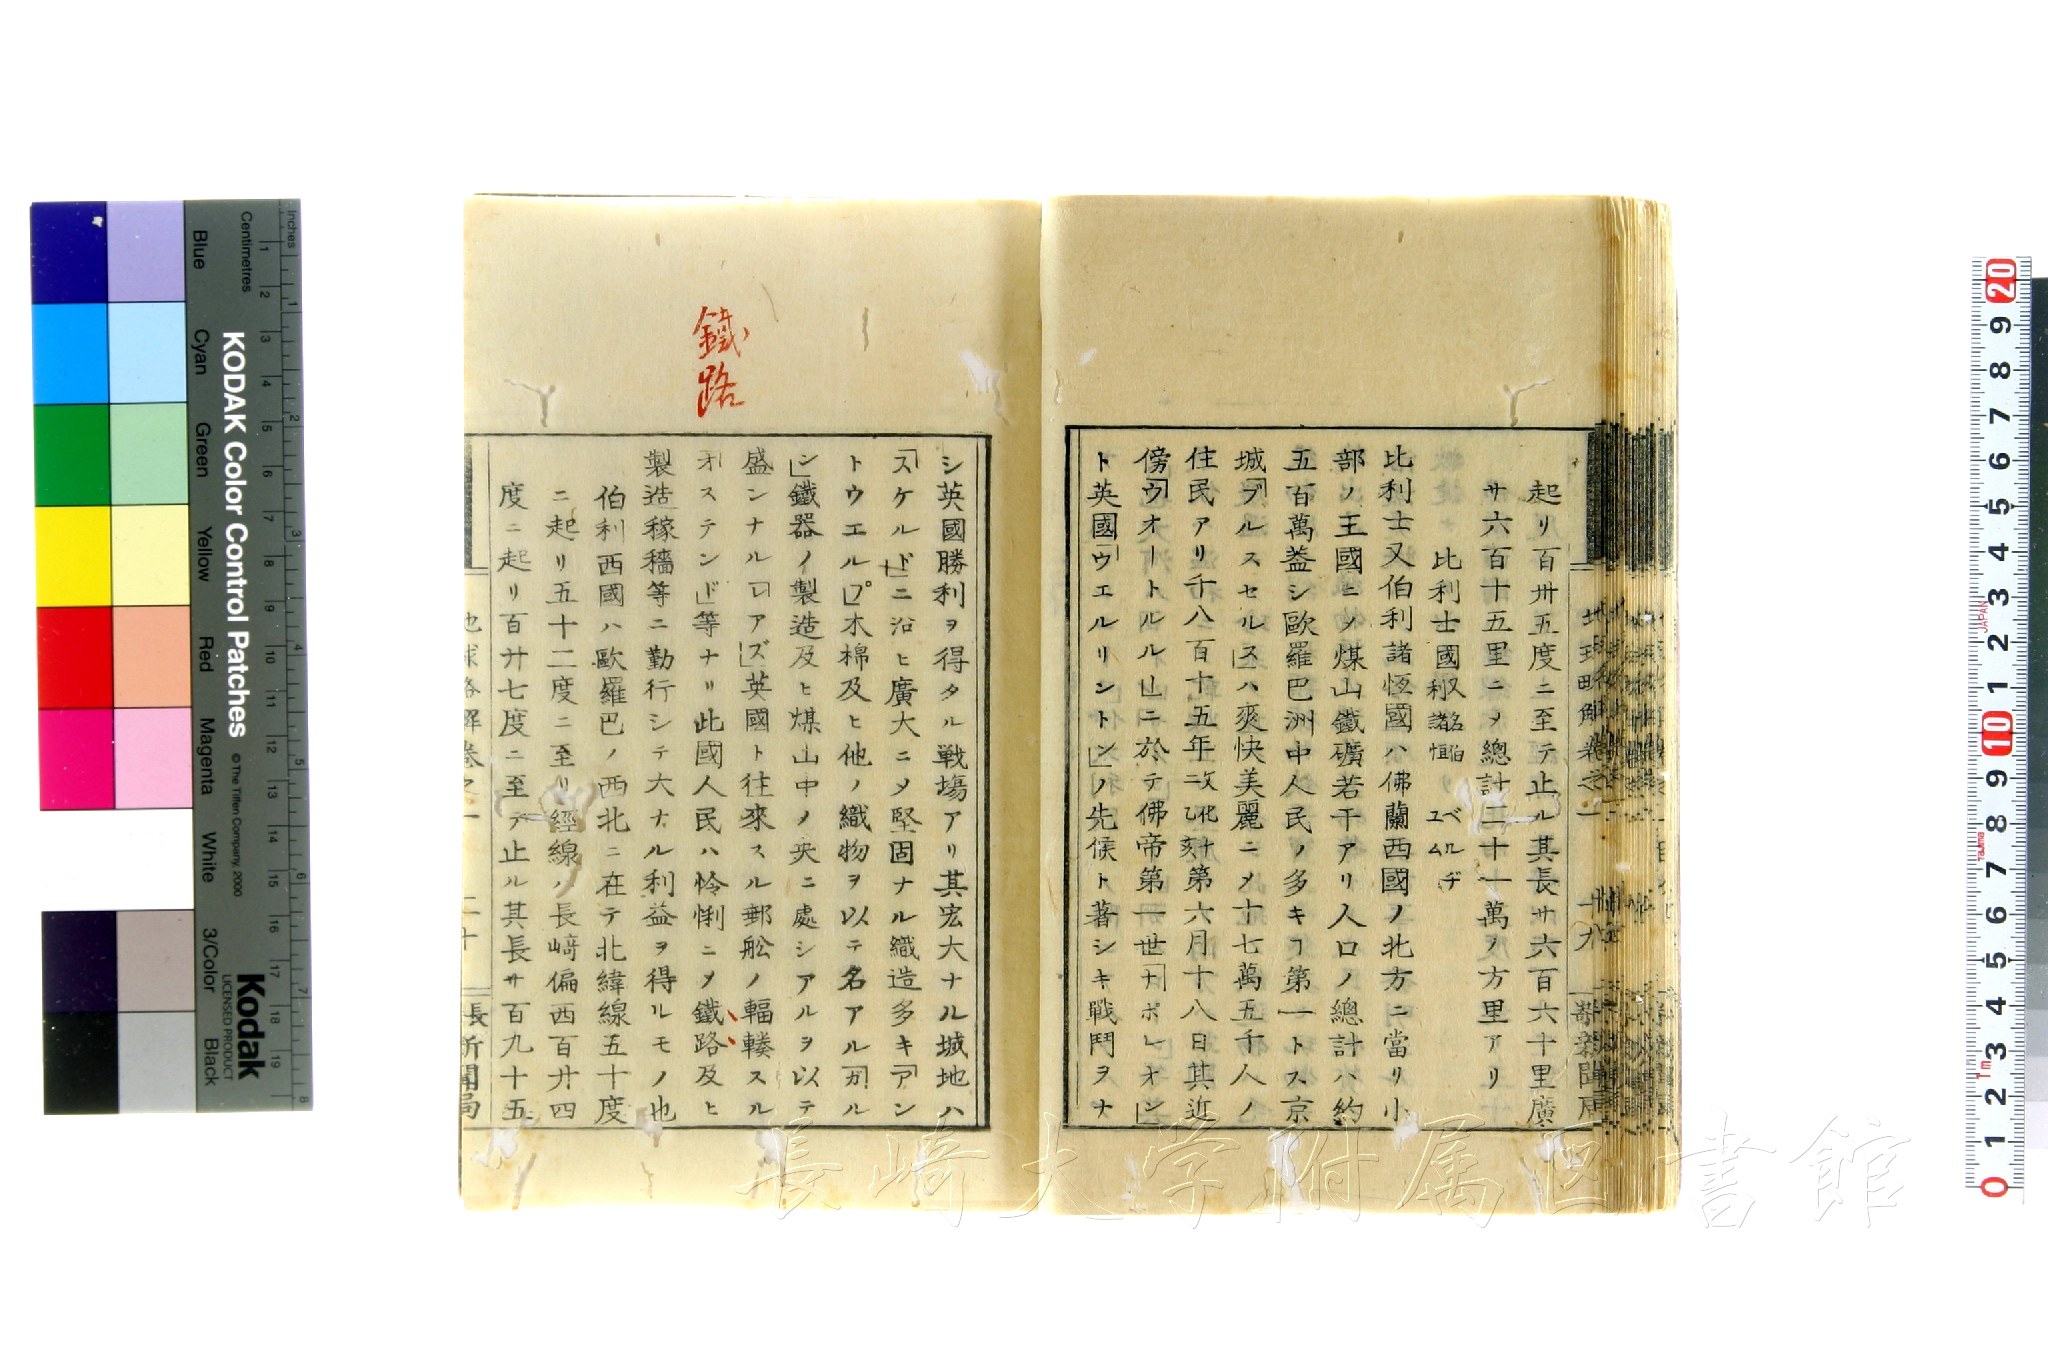 起リ百卅五度ニ至テ止ル其長サ六百六十里廣
サ六百十五里ニノ總計二十一萬ノ方里アリ
比利士國 又名伯利諸恆 ベルヂユム
比利士又伯利諸恆國ハ佛蘭西國ノ北方ニ當リ小
部ノ王國ニノ煤山鐵礦若干アリ人口ノ總計ハ約
五百萬蓋シ歐羅巴洲中人民ノ多キヿ第一トス京
城「ブルスセルス」ハ爽快美麗ニノ十七萬五千人ノ
住民アリ千八百十五年文化十二乙亥第六月十八日其近
傍「ウオートルル」ニ於テ佛帝第一世「ナポレオン」
ト英國「ウエルリントン」ノ先侯ト著シキ戰鬥ヲナ
地球略解卷之一 十九 崎新聞局
シ英國勝利ヲ得タル戦場アリ其宏大ナル城地ハ
「スケルド」ニ沿ヒ廣大ニノ堅固ナル織造多キ「アン
トウエルプ」木棉及ヒ他ノ織物ヲ以テ名アル「ガル
シ」鐵器ノ製造及ヒ煤山中ノ央ニ處シアルヲ以テ
盛ンナル「レアズ」英國ト往來スル郵舩ノ輻輳スル
「オステンド」等ナリ此國人民ハ怜悧ニノ鐵路及ヒ
製造稼穡等ニ勤行シテ大ナル利益ヲ得ルモノ也
伯利西國ハ歐羅巴ノ西北ニ在テ北緯線五十度
ニ起リ五十二度ニ至リ經線ハ長﨑偏西百廿四
度ニ起リ百廿七度ニ至テ止ル其長サ百九十五
地球略解卷之一 二十 長新聞局
鐵路
長崎大学附属図書館
KODAK Color Control Patches
©The Tiffen Company, 2000
Kodak
LICENSED PRODUCT
Inches
Centimetres
Blue
Cyan
Green
Yellow
Red
Magenta
White
3/Color
Black
1 2 3 4 5 6 7 8
1 2 3 4 5 6 7 8 9 10 11 12 13 14 15 16 17 18 19
20 9 8 7 6 5 4 3 2 1 10 9 8 7 6 5 4 3 2 1 0
JAPAN
Tajima
1m